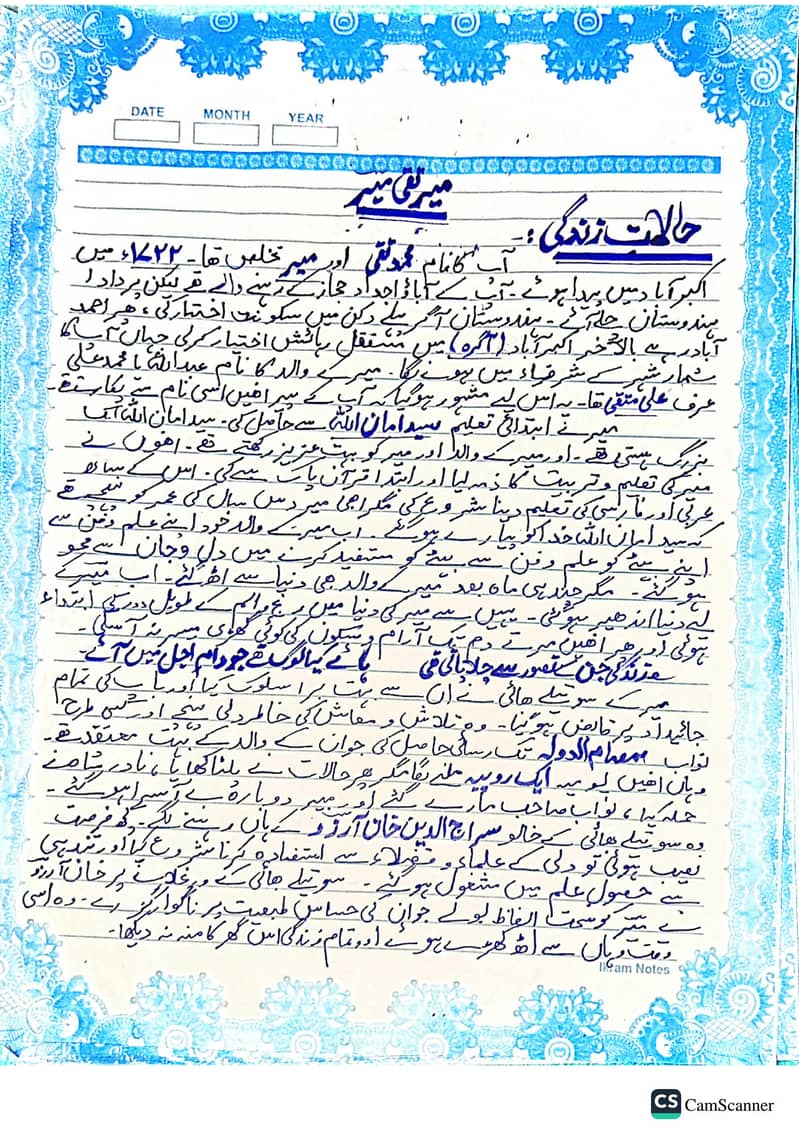 DATE MONTH YEAR
میر تقی میر
حالاتِ زندگی :-
آپ کا نام محمد تقی اور میر تخلص تھا۔ ۱۷۲۲ء میں
اکبر آباد میں پیدا ہوئے۔ آپ کے آباؤ اجداد حجاز کے رہنے والے تھے لیکن پردادا
ہندوستان چلے آئے۔ ہندوستان آکر پہلے دکن میں سکونت اختیار کی، پھر احمد
آباد رہے بالآخر اکبر آباد (آگرہ) میں مستقل رہائش اختیار کرلی جہاں آپ کا
شمار شہر کے شرفاء میں ہونے لگا۔ میر کے والد کا نام عبداللہ یا محمد علی
عرف علی متقی تھا۔ یہ اس لیے مشہور ہوگیا کہ آپ کے پیر انھیں اسی نام سے پکارتے تھے۔
میر نے ابتدائی تعلیم سید امان اللہ سے حاصل کی۔ سید امان اللہ ایک
بزرگ ہستی تھے۔ اور میر کے والد اور میر کو بہت عزیز رکھتے تھے۔ انھوں نے
میر کی تعلیم و تربیت کا ذمہ لیا اور ابتدا قرآن پاک سے کی۔ اس کے ساتھ
عربی اور فارسی کی تعلیم دینا شروع کی مگر ابھی میر دس سال کی عمر کو پہنچے تھے
کہ سید امان اللہ خدا کو پیارے ہوگئے۔ اب میر کے والد خود اپنے علم و فن سے
اپنے بیٹے کو علم و فن سے مستفید کرنے میں دل و جان سے محو
ہوگئے۔ مگر چند ہی ماہ بعد میر کے والد بھی دنیا سے اٹھ گئے۔ اب میر کے
لیے دنیا اندھیر ہوگئی۔ یہیں سے میر کی دنیا میں رنج و الم کے طویل دور کی ابتداء
ہوئی اور پھر انھیں مرتے دم تک آرام و سکون کی کوئی گھڑی میسر نہ آسکی۔
زندگی جن کے تصور سے جلا پاتی تھی ہائے کیا لوگ تھے جو دام اجل میں آئے۔
میر کے سوتیلے بھائی نے ان سے بہت برا سلوک کیا اور باپ کی تمام
جائیداد پر قابض ہوگیا۔ وہ تلاش و معاش کی خاطر دلی پہنچے اور کسی طرح
نواب صمصام الدولہ تک رسائی حاصل کی جو ان کے والد کے بہت معتقد تھے۔
وہاں انھیں یومیہ ایک روپیہ ملنے لگا مگر پھر حالات نے پلٹا کھایا، نادر شاہ نے
حملہ کیا، نواب صاحب مارے گئے اور میر دوبارہ بے آسرا ہوگئے۔
وہ سوتیلے بھائی کے خالو سراج الدین خان آرزو کے ہاں رہنے لگے۔ کچھ فرصت
نصیب ہوئی تو دلی کے علماء و فضلاء سے استفادہ کرنا شروع کیا اور تندہی
سے حصول علم میں مشغول ہوگئے۔ سوتیلے بھائی کے ورغلانے پر خان آرزو
نے میر کو سخت الفاظ بولے جو ان کی حساس طبیعت پر ناگوار گزرے۔ وہ اسی
وقت وہاں سے اٹھ کھڑے ہوئے اور تمام زندگی اس گھر کا منہ نہ دیکھا۔
Ikram Notes
CS CamScanner